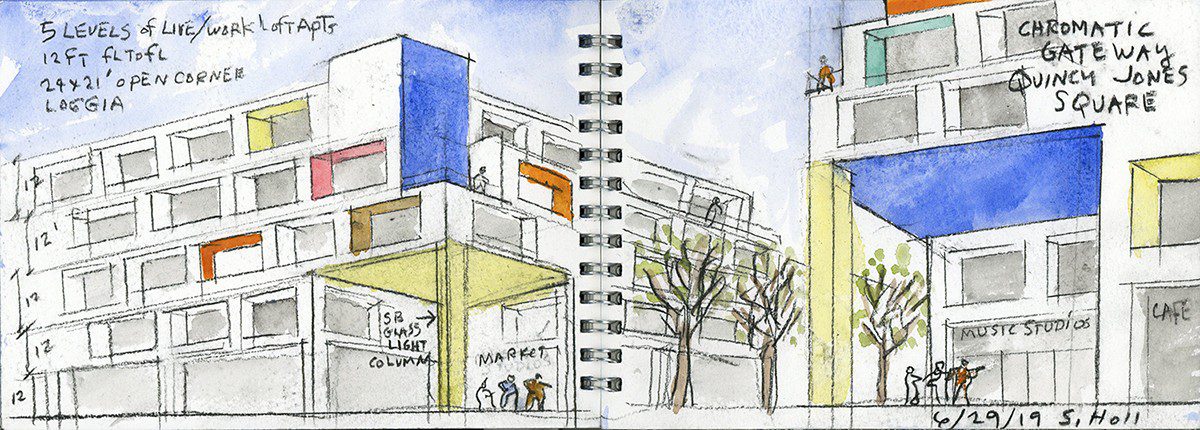 5 LEVELS of LIVE/WORK LOFT APTS
12 FT FL TO FL
24 x 21' OPEN CORNER
LOGGIA
12
12'
12
12
12
SB
GLASS
LIGHT
COLUMN
MARKET
CHROMATIC
GATEWAY
QUINCY JONES
SQUARE
MUSIC STUDIOS
CAFE
6/29/19 S. Holl